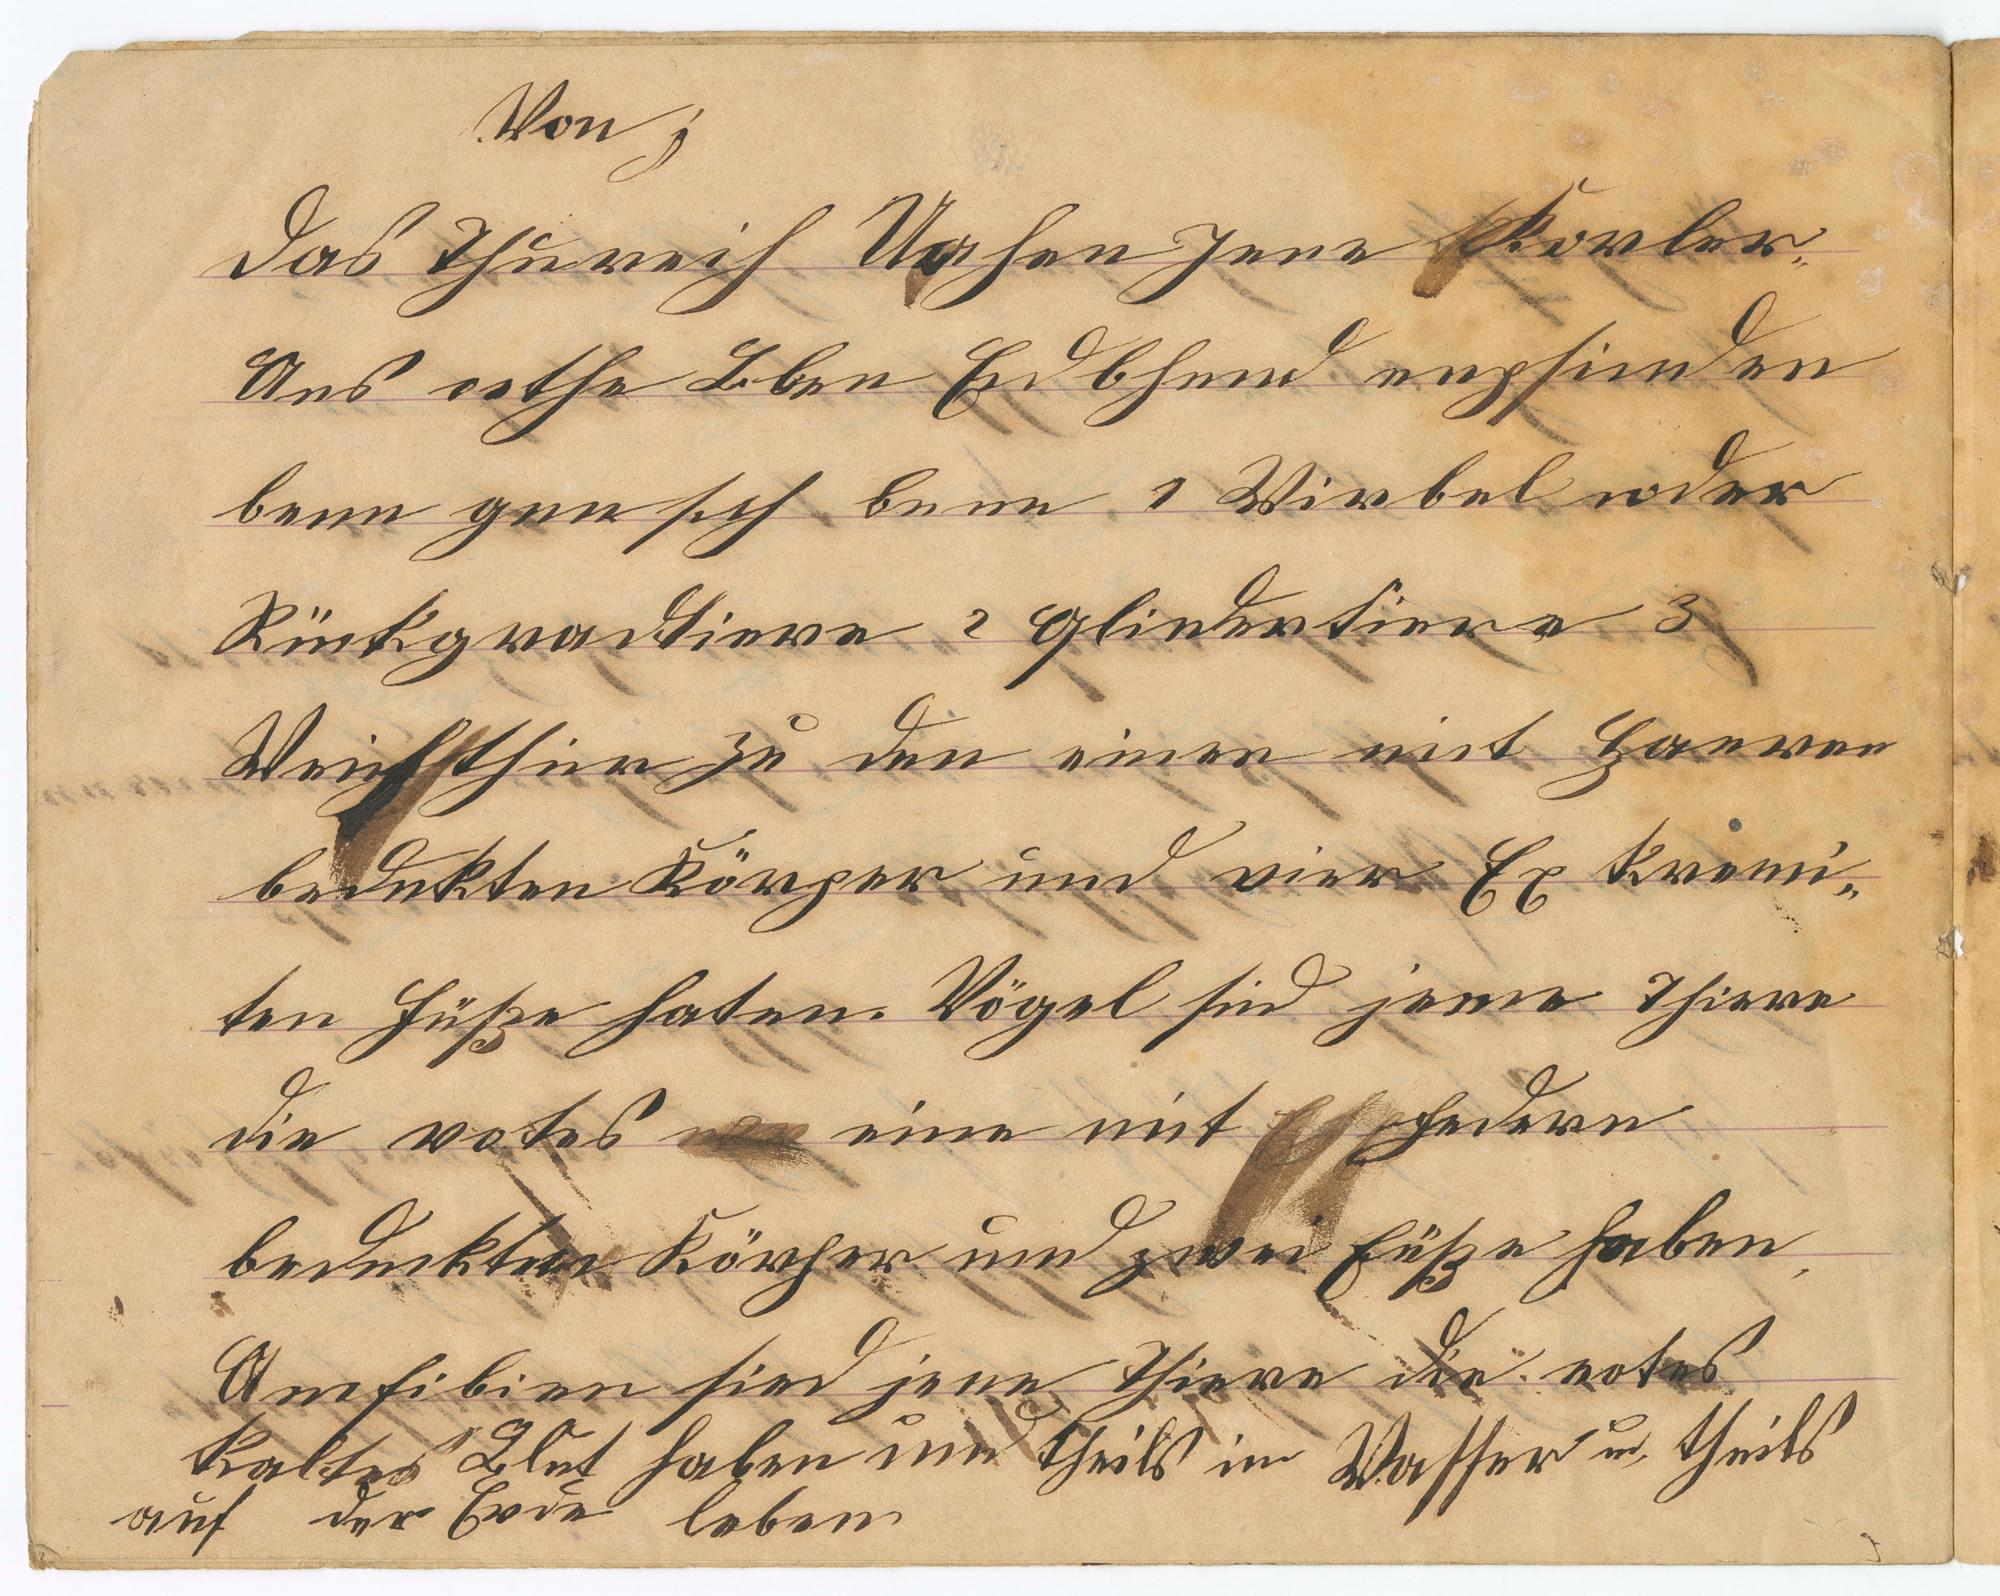 Von
das Thureich Uahen Jene Körler„
Aus rothe Lben Erdbhend enpfinden
benn gensich benn 1 Wirbel oder
Rückgradtiere 2 Gliedertiere 3
Weichthier zu den einen mit Haaren
bedekten Körper und vier Ex kremi„
ten Füße haten. Vögel sind jene Thiere
die rotes eine mit Federn
bedeckten Körper und zwei Füße haben,
Amfibien sind jene Thiere die rotes
kaltes Blut haben und theils im Wasser u. theils
auf der Erde leben